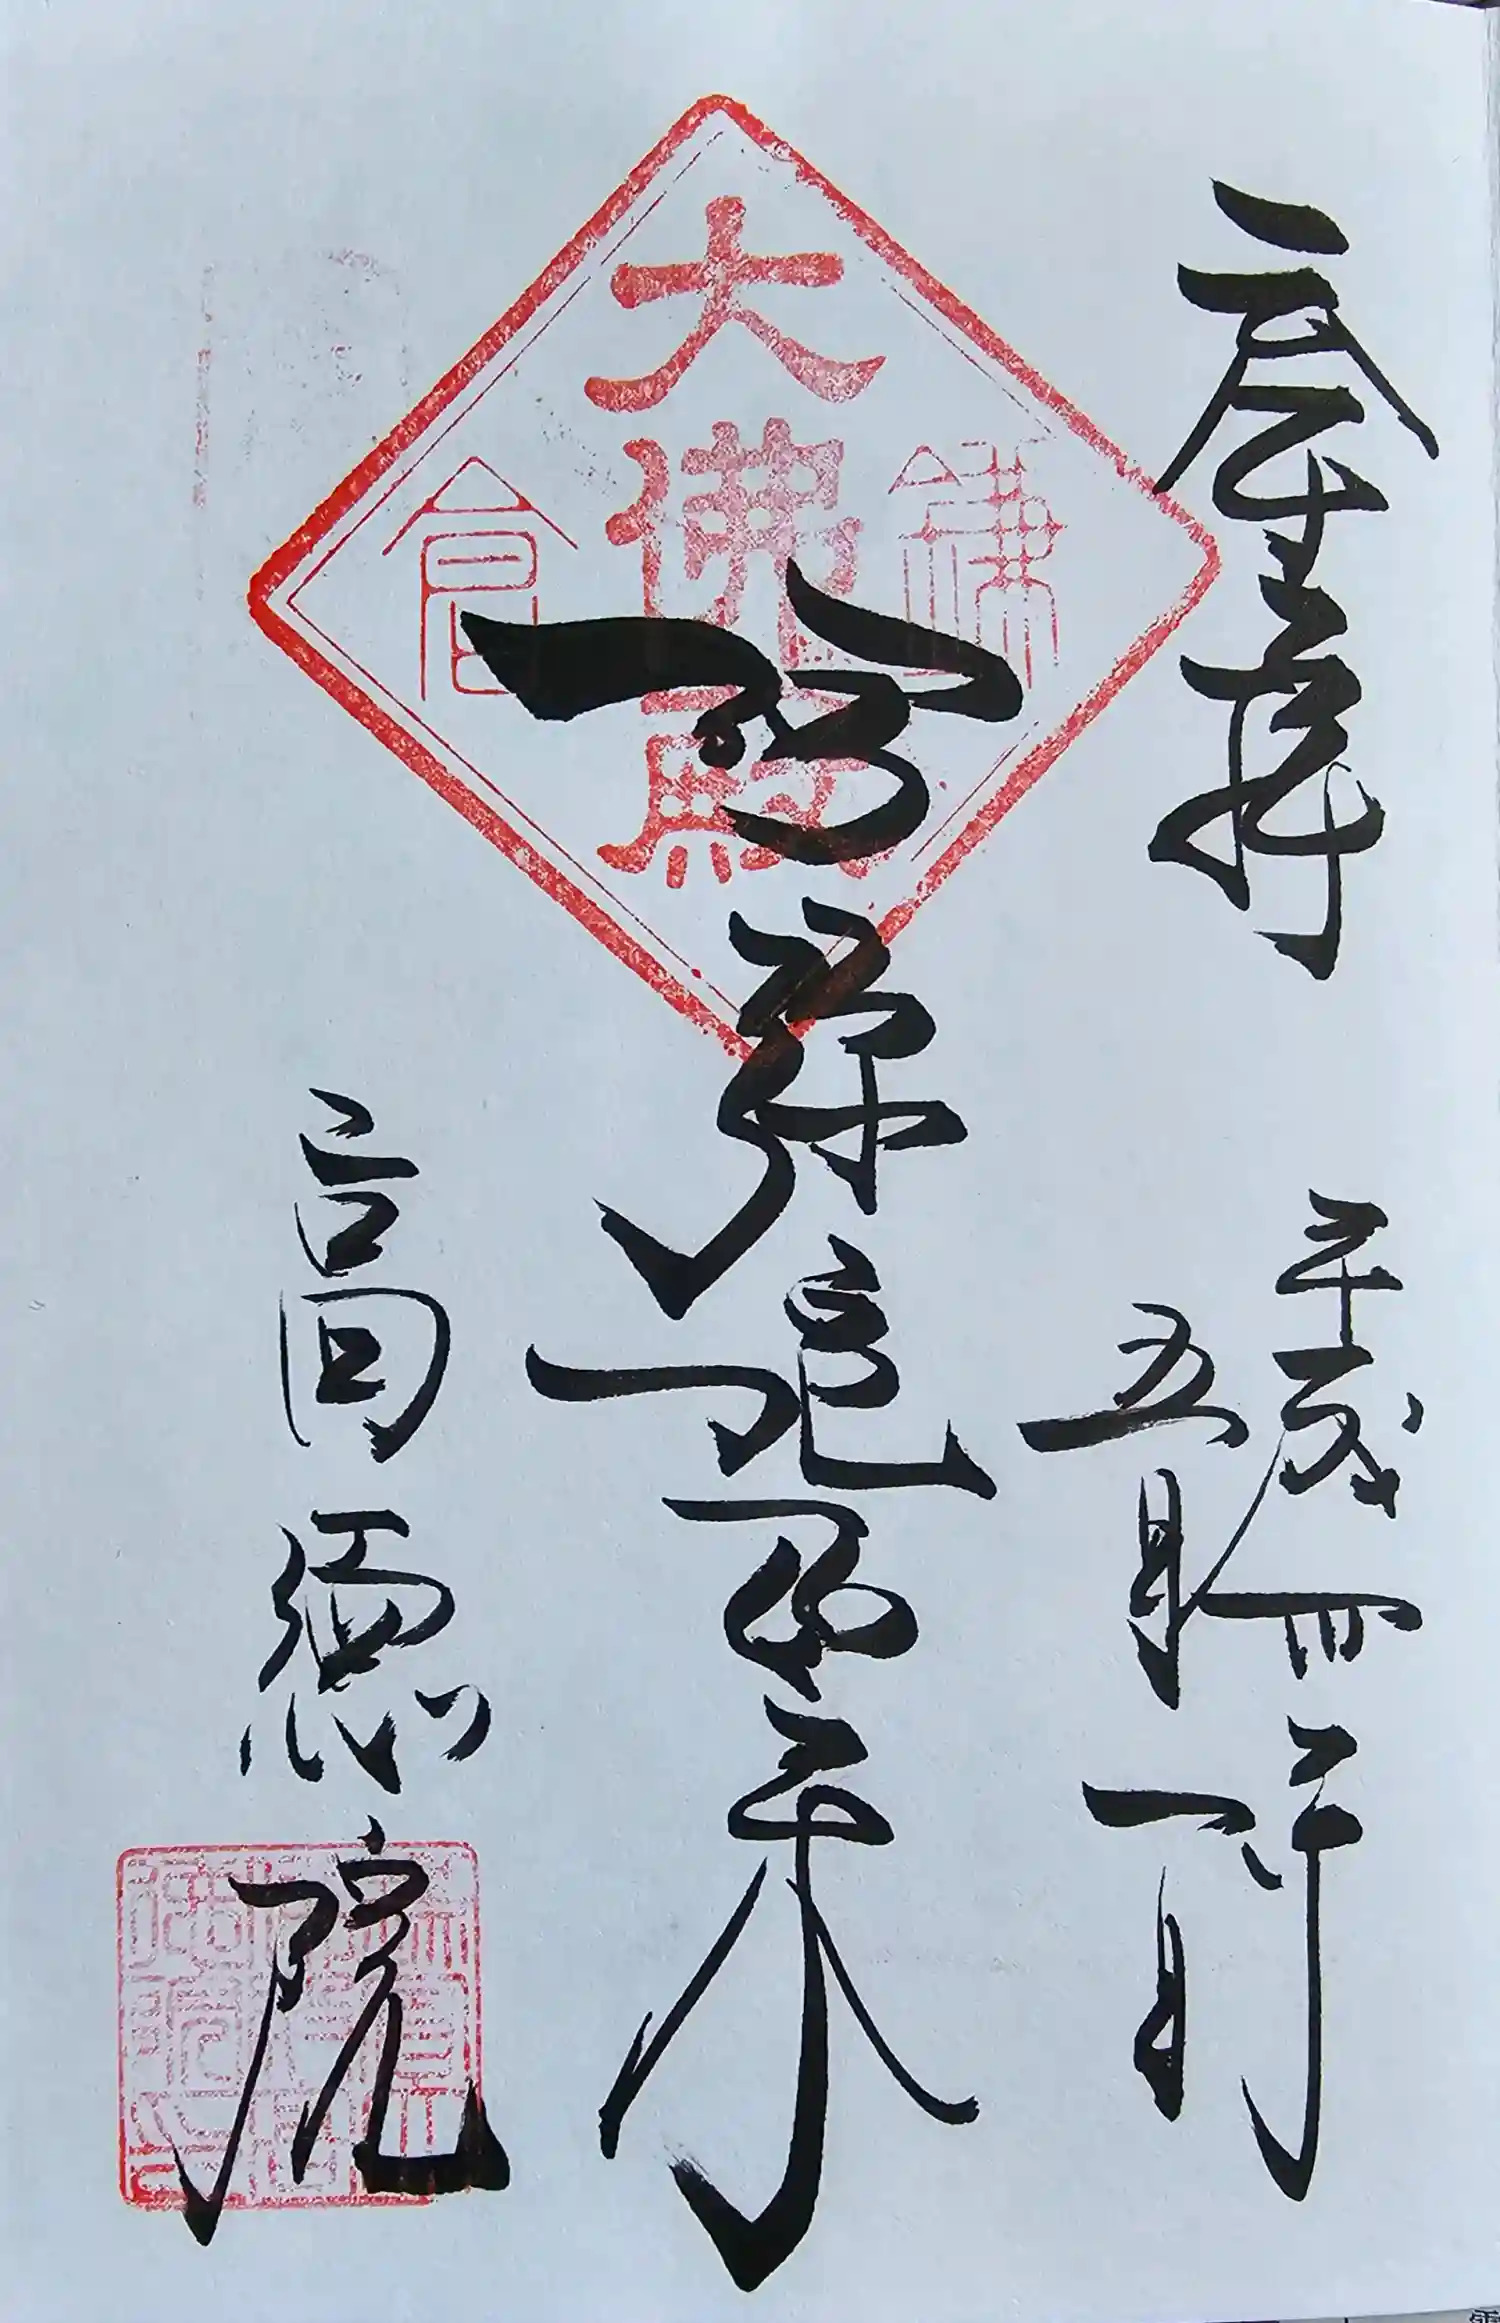 奉拝
平成
年
五月
日
大佛殿
鎌倉
阿弥陀如来
高徳院